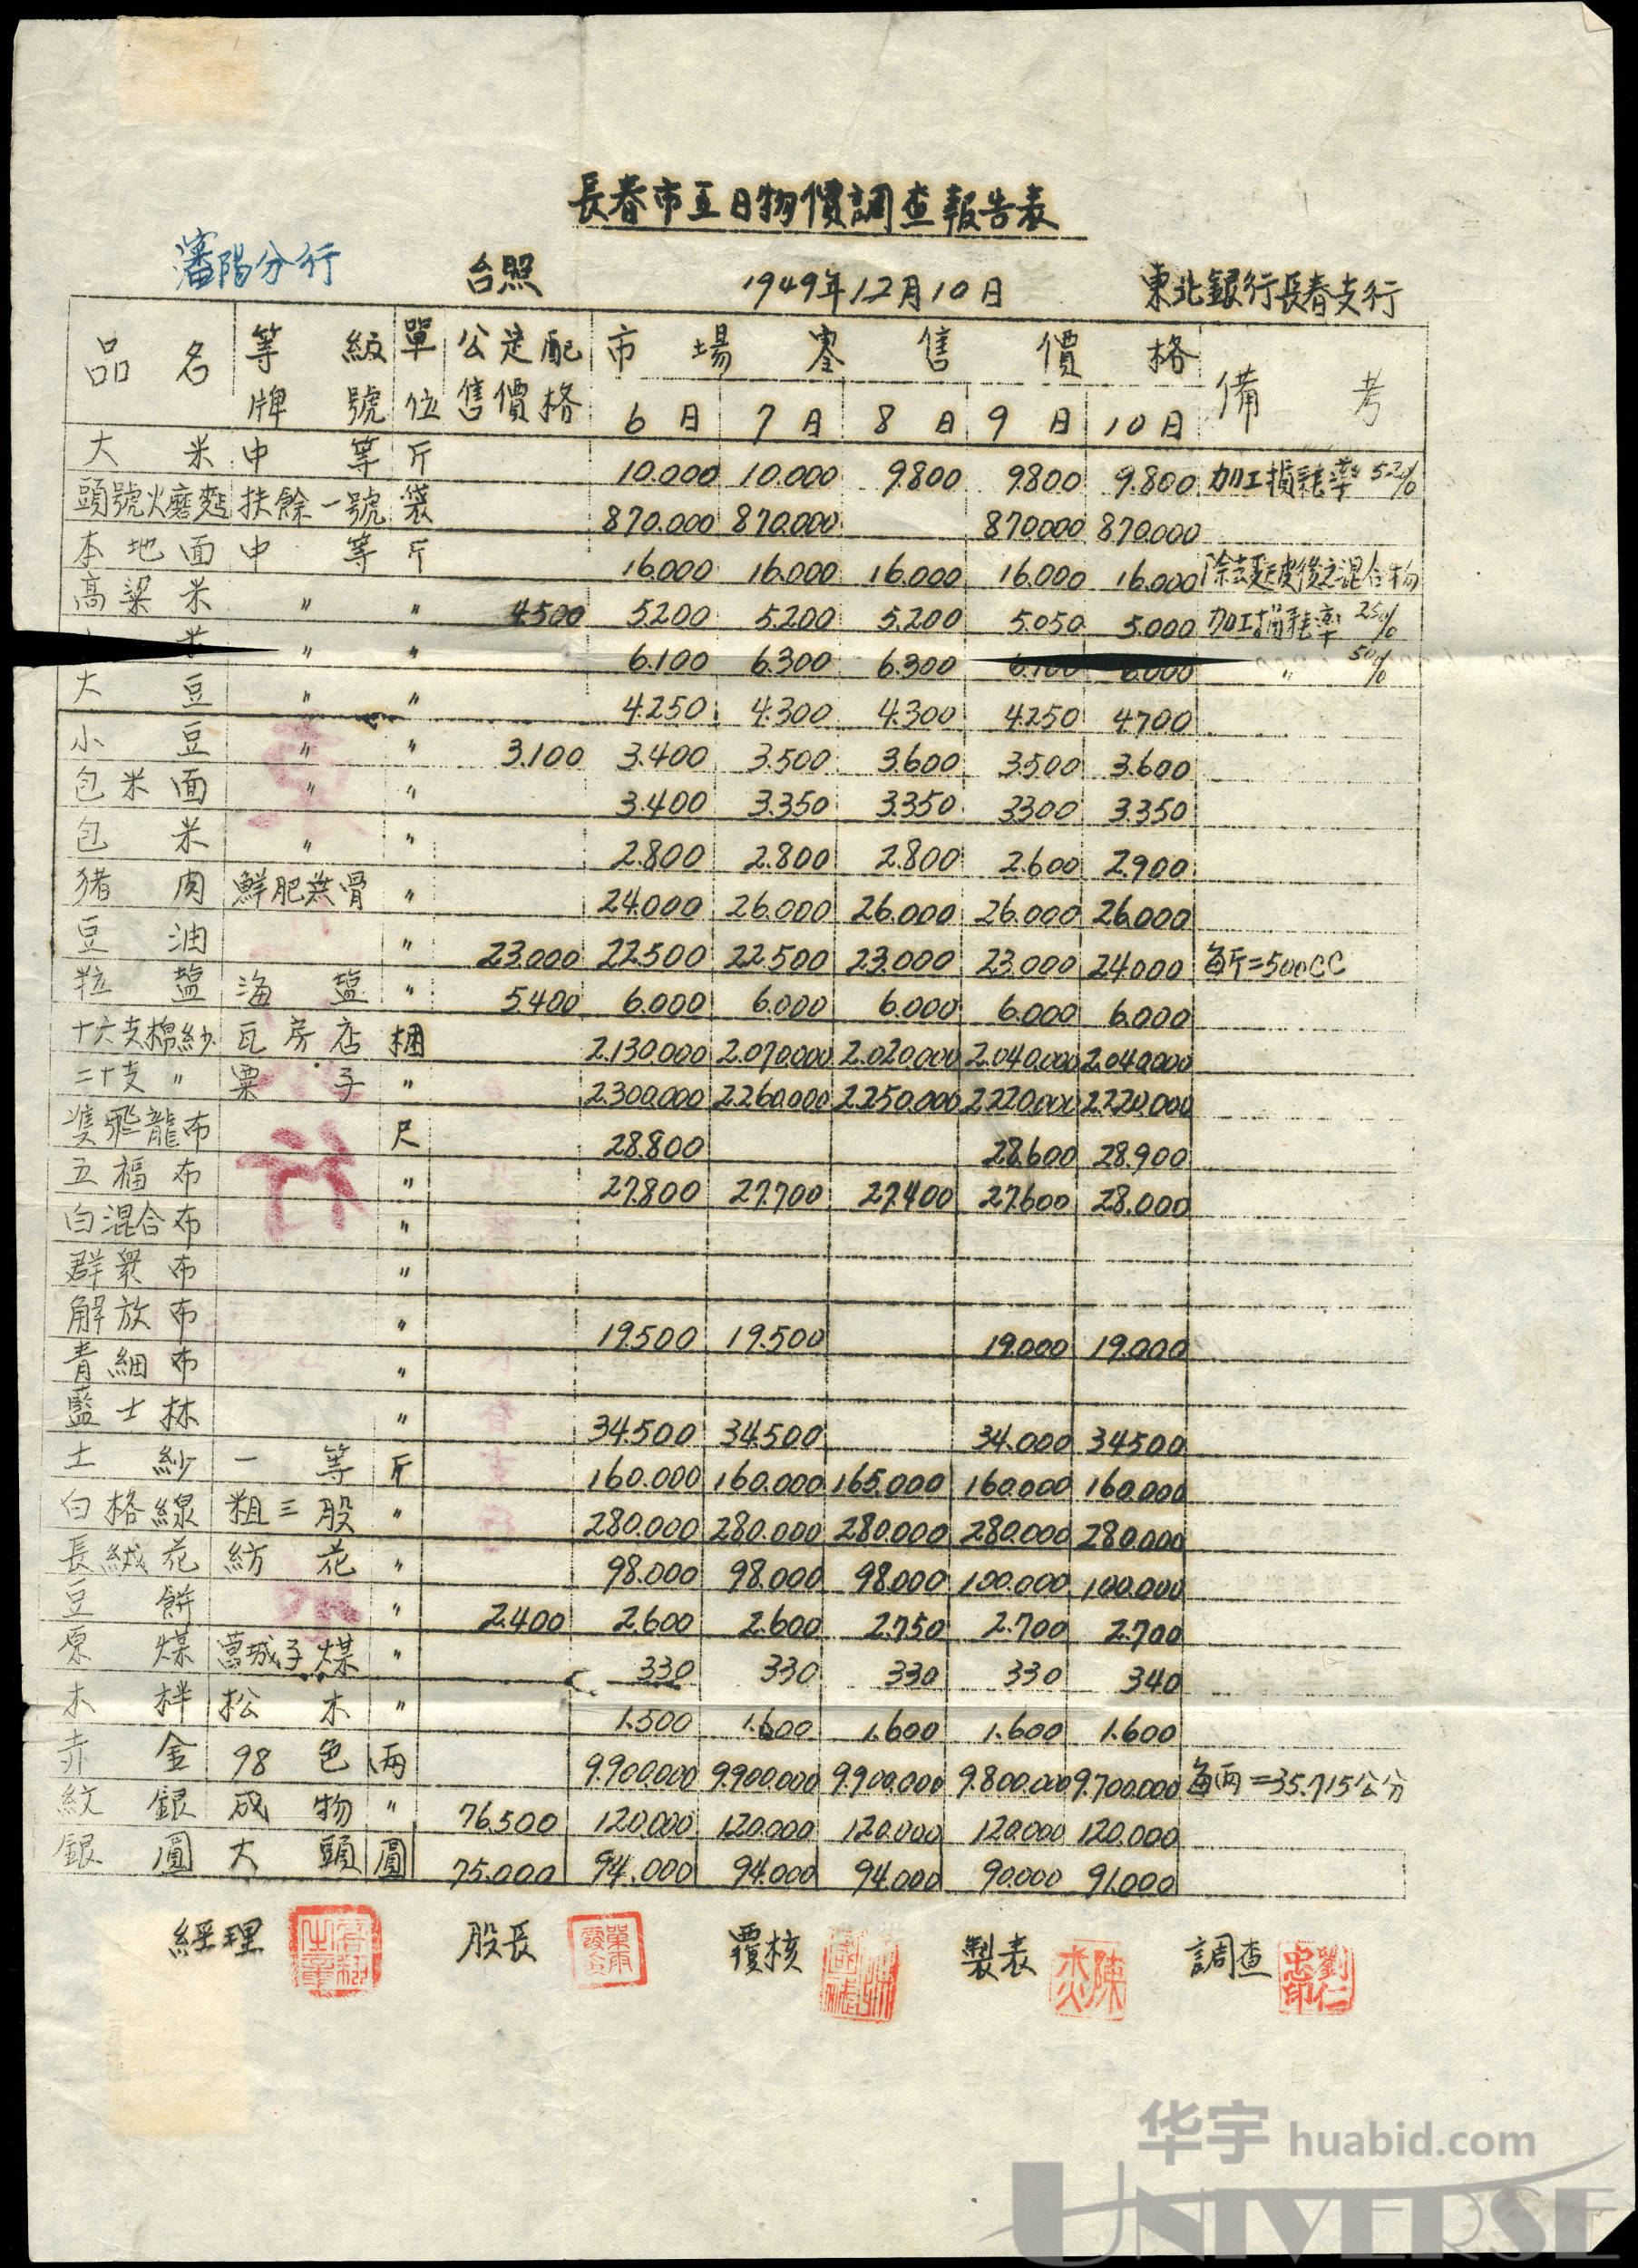 長春市五日物價調查報告表
瀋陽分行 台照 1949年12月10日 東北銀行長春支行
品名 等級牌號 單位 公定配售價格 市場零售價格 備考
6日 7日 8日 9日 10日
大米 中等 斤 10.000 10.000 9.800 9.800 9.800 加工損耗率 52%
頭號火磨麵 扶餘一號 袋 870.000 870.000 870.000 870.000
本地面 中等 斤 16.000 16.000 16.000 16.000 16.000 除去麩皮後之混合物
高粱米 〃 〃 4.500 5.200 5.200 5.200 5.050 5.000 加工損耗率 25%
米 〃 〃 6.100 6.300 6.300 6.100 6.000 〃 50%
大豆 〃 〃 4.250 4.300 4.300 4.250 4.700
小豆 〃 〃 3.100 3.400 3.500 3.600 3.500 3.600
包米面 〃 〃 3.400 3.350 3.350 3.300 3.350
包米 〃 〃 2.800 2.800 2.800 2.600 2.900
猪肉 鮮肥無骨 〃 24.000 26.000 26.000 26.000 26.000
豆油 〃 23.000 22.500 22.500 23.000 23.000 24.000 每斤=500CC
粒塩 海塩 〃 5.400 6.000 6.000 6.000 6.000 6.000
十六支棉紗 瓦房店 梱 2.130.000 2.070.000 2.020.000 2.040.000 2.040.000
二十支〃 栗子 〃 2.300.000 2.260.000 2.250.000 2.220.000 2.220.000
雙飛龍布 尺 28.800 28.600 28.900
五福布 〃 27.800 27.700 27.400 27.600 28.000
白混合布 〃
群衆布 〃
解放布 〃 19.500 19.500 19.000 19.000
青細布 〃
藍士林 〃 34.500 34.500 34.000 34.500
土紗 一等 斤 160.000 160.000 165.000 160.000 160.000
白格線 粗三股 〃 280.000 280.000 280.000 280.000 280.000
長絨花 紡花 〃 98.000 98.000 98.000 100.000 100.000
豆餅 〃 2.400 2.600 2.600 2.750 2.700 2.700
原煤 子煤 〃 330 330 330 330 340
木柈 松木 〃 1.500 1.600 1.600 1.600 1.600
赤金 98色 兩 9.900.000 9.900.000 9.900.000 9.800.000 9.700.000 每兩=35.715公分
紋銀 成物 〃 76.500 120.000 120.000 120.000 120.000 120.000
銀圓 大頭 圓 75.000 94.000 94.000 94.000 90.000 91.000
經理 股長 覆核 製表 調查 劉仁忠印
华宇 huabid.com
UNIVERSE